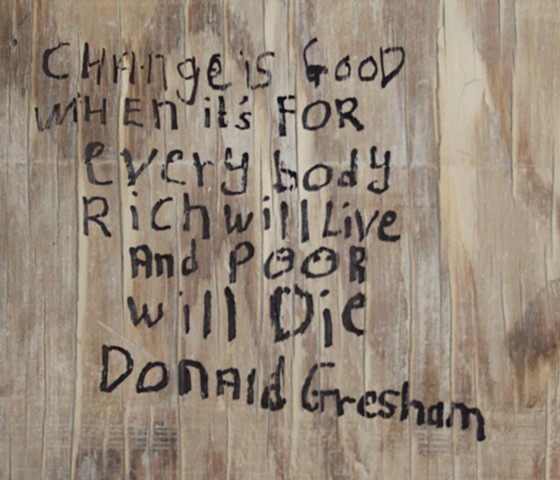 CHANge is GooD
WHEn it's FOR
every body
Rich will Live
And POOR
will Die
DonAld Gresham